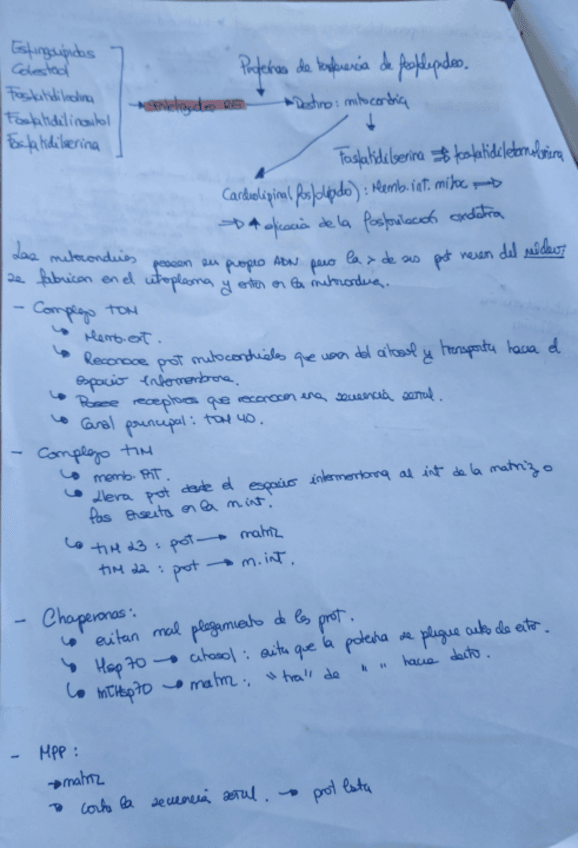 Esfingolípidos
Colesterol
Proteínas de transferencia de fosfolípidos.
Fosfatidilcolina
RE → Destino: mitocondria
Fosfatidilinositol
Fosfatidilserina
Fosfatidilserina ⇒ fosfatidiletanolamina
Cardiolipina (fosfolípido): Memb. int. mitoc ⇒
⇒ ↑ eficacia de la fosforilación oxidativa
Las mitocondrias poseen su propio ADN pero la > de sus prot vienen del núcleo;
se fabrican en el citoplasma y entran en la mitocondria.
- Complejo TOM
↳ Memb. ext.
↳ Reconoce prot mitocondriales que vienen del citosol y transporta hacia el
espacio intermembrana.
↳ Posee receptores que reconocen una secuencia señal.
↳ Canal principal: TOM 40.
- Complejo TIM
↳ memb. INT.
↳ lleva prot desde el espacio intermembrana al int de la matriz o
las inserta en la m.int.
↳ TIM 23: prot → matriz
TIM 22: prot → m.int.
- Chaperonas:
↳ evitan mal plegamiento de las prot.
↳ Hsp70 → citosol: evita que la proteína se pliegue antes de entr.
↳ mtHsp70 → matriz: "tira" de " " hacia dentro.
- MPP:
→ matriz
→ corta la secuencia señal. → prot lista